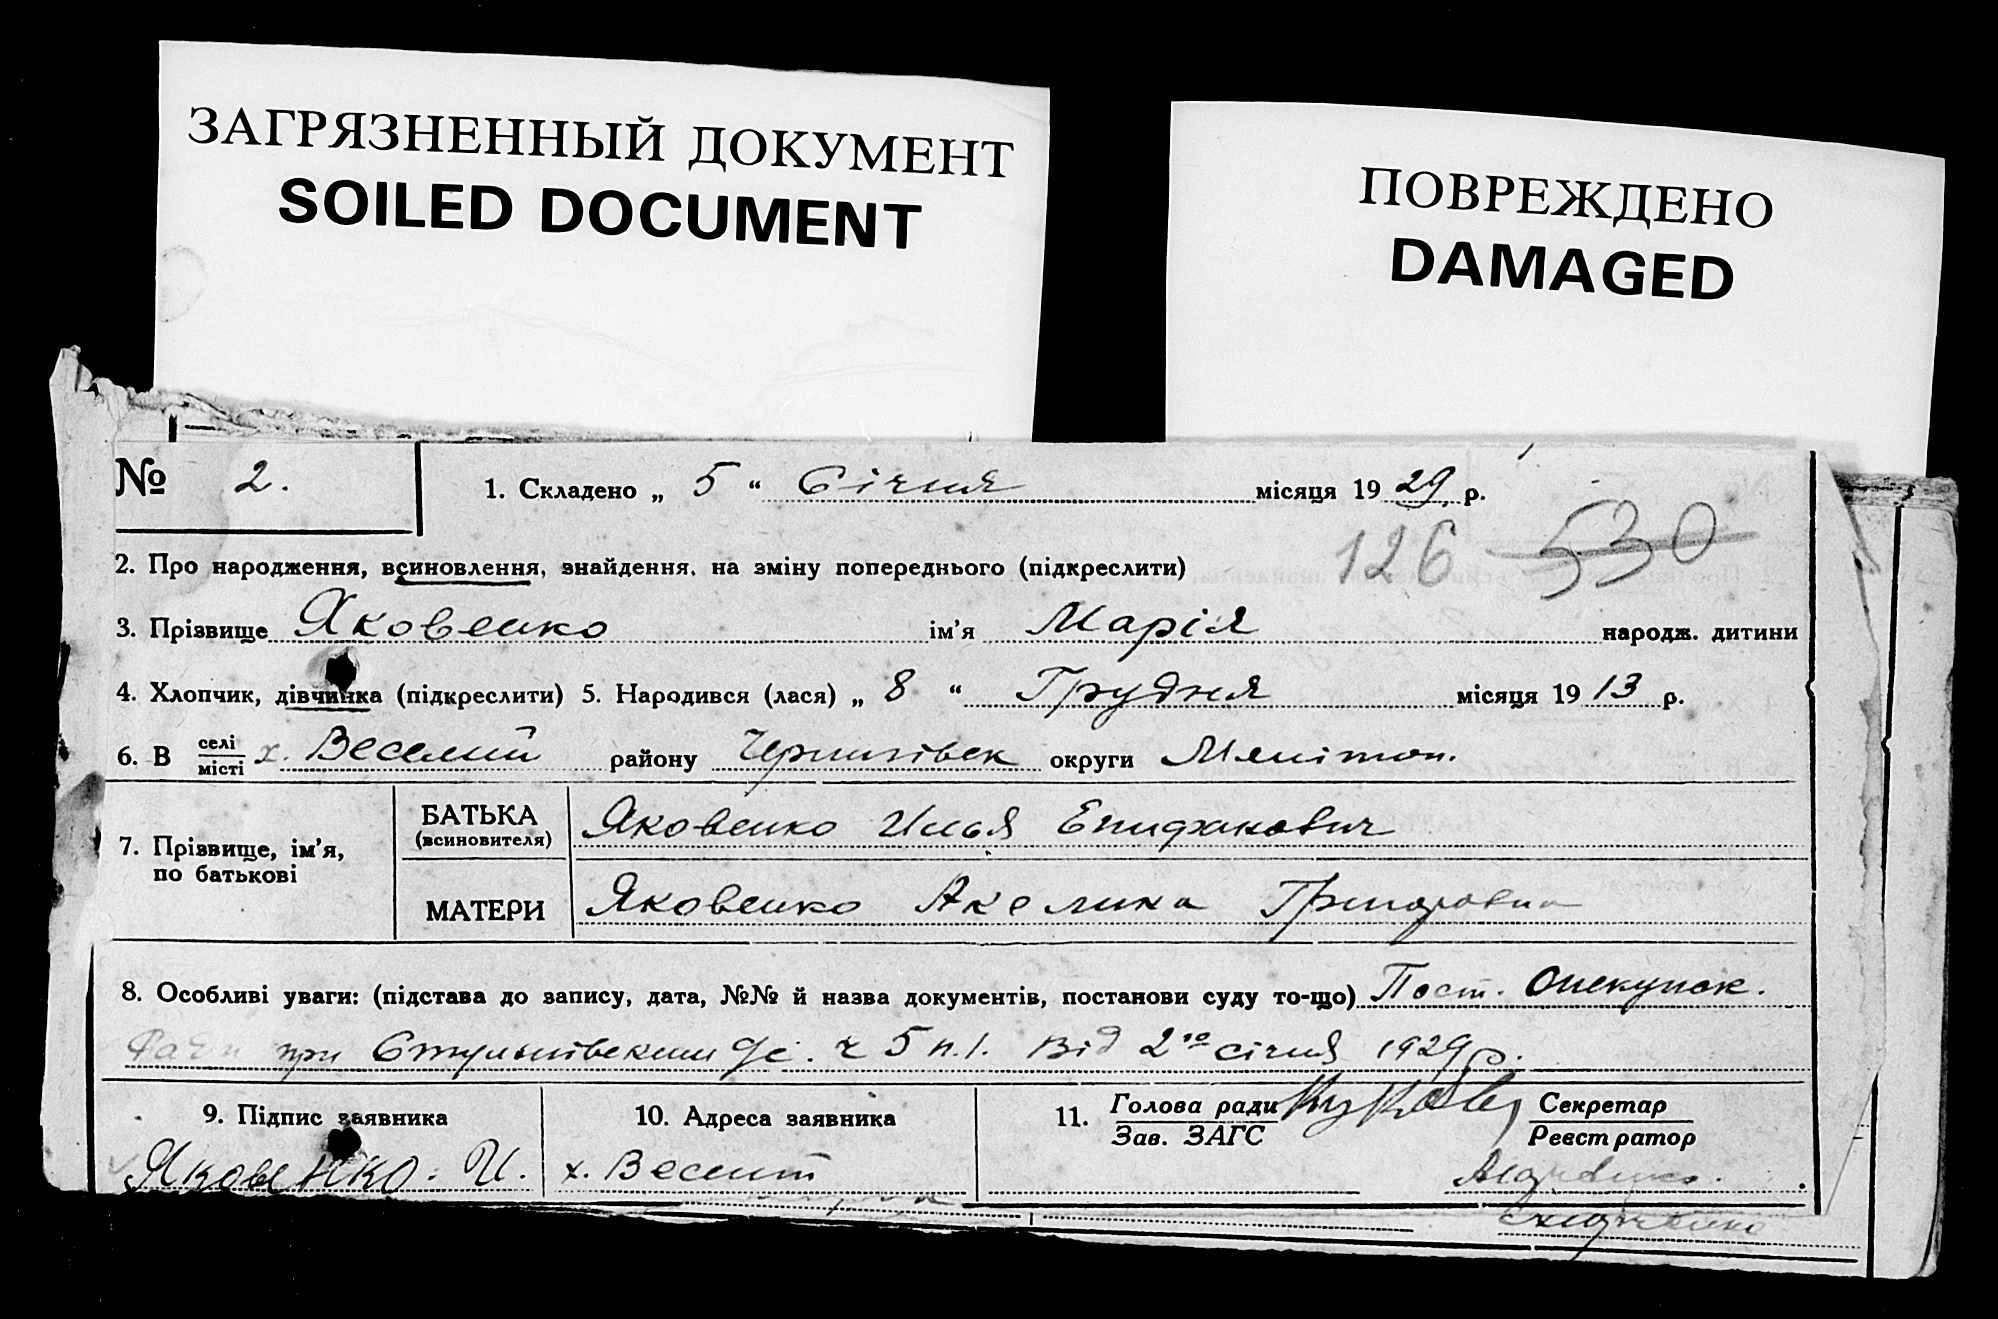 ЗАГРЯЗНЕННЫЙ ДОКУМЕНТ
SOILED DOCUMENT
ПОВРЕЖДЕНО
DAMAGED
№ 2.
1. Складено „ 5 “ Січня місяця 1929 р.
126 530
2. Про народження, всиновлення, знайдення, на зміну попереднього (підкреслити)
3. Прізвище Яковенко ім'я Марія народж. дитини
4. Хлопчик, дівчинка (підкреслити) 5. Народився (лася) „ 8 “ Грудня місяця 1913 р.
6. В селі/місті х. Веселий району Чернигівск округи Мелітоп.
7. Прізвище, ім'я, по батькові
БАТЬКА (всиновителя) Яковенко Илья Епифанович
МАТЕРИ Яковенко Акелина Григоровна
8. Особливі уваги: (підстава до запису, дата, №№ й назва документів, постанови суду то-що) Пост. Опекунск.
Ради при ч 5 п. 1. від 2го січня 1929 р.
9. Підпис заявника
Яковенко. И.
10. Адреса заявника
х. Веселий
11. Голова ради
Зав. ЗАГС
Секретар
Реєстратор